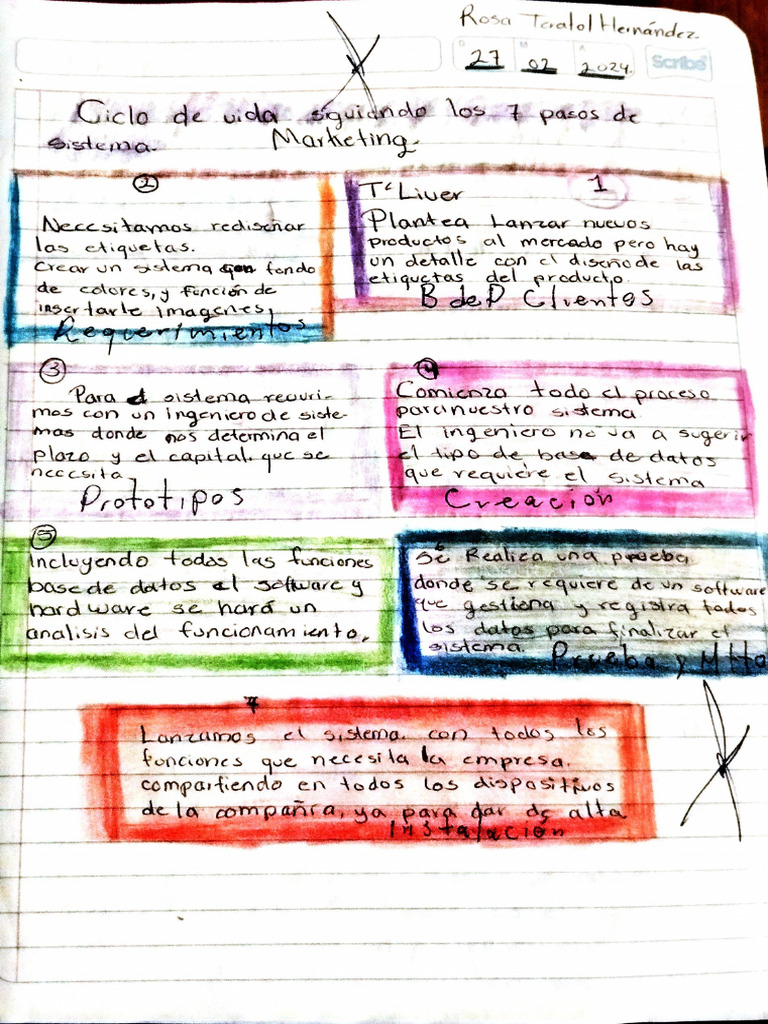 Rosa Hernández
D M A
27 02 2024.
Scribe
Ciclo de vida siguiendo los 7 pasos de
sistema. Marketing.
1
T' Liver
Plantea Lanzar nuevos
productos al mercado pero hay
un detalle con el diseño de las
etiquetas del producto.
B de P Clientes
2
Necesitamos rediseñar
las etiquetas.
Crear un sistema con fondo
de colores, y función de
insertarle imagenes,
Requerimientos
3
Para el sistema recurri-
mos con un ingeniero de siste-
mas donde nos determina el
plazo y el capital. que se
necesita
Prototipos
4
Comienza todo el proceso
para nuestro sistema.
El ingeniero no va a sugerir
el tipo de base de datos
que requiere el sistema
Creación
5
Incluyendo todas las funciones
base de datos el software y
hardware se hará un
analisis del funcionamiento,
6
Se Realiza una prueba
donde se requiere de un software
que gestiona y registra todos
los datos para finalizar el
sistema. Prueba y Mtto
7
Lanzamos el sistema. con todos los
funciones que necesita la empresa.
compartiendo en todos los dispositivos
de la compañía, ya para dar de alta
Instalación